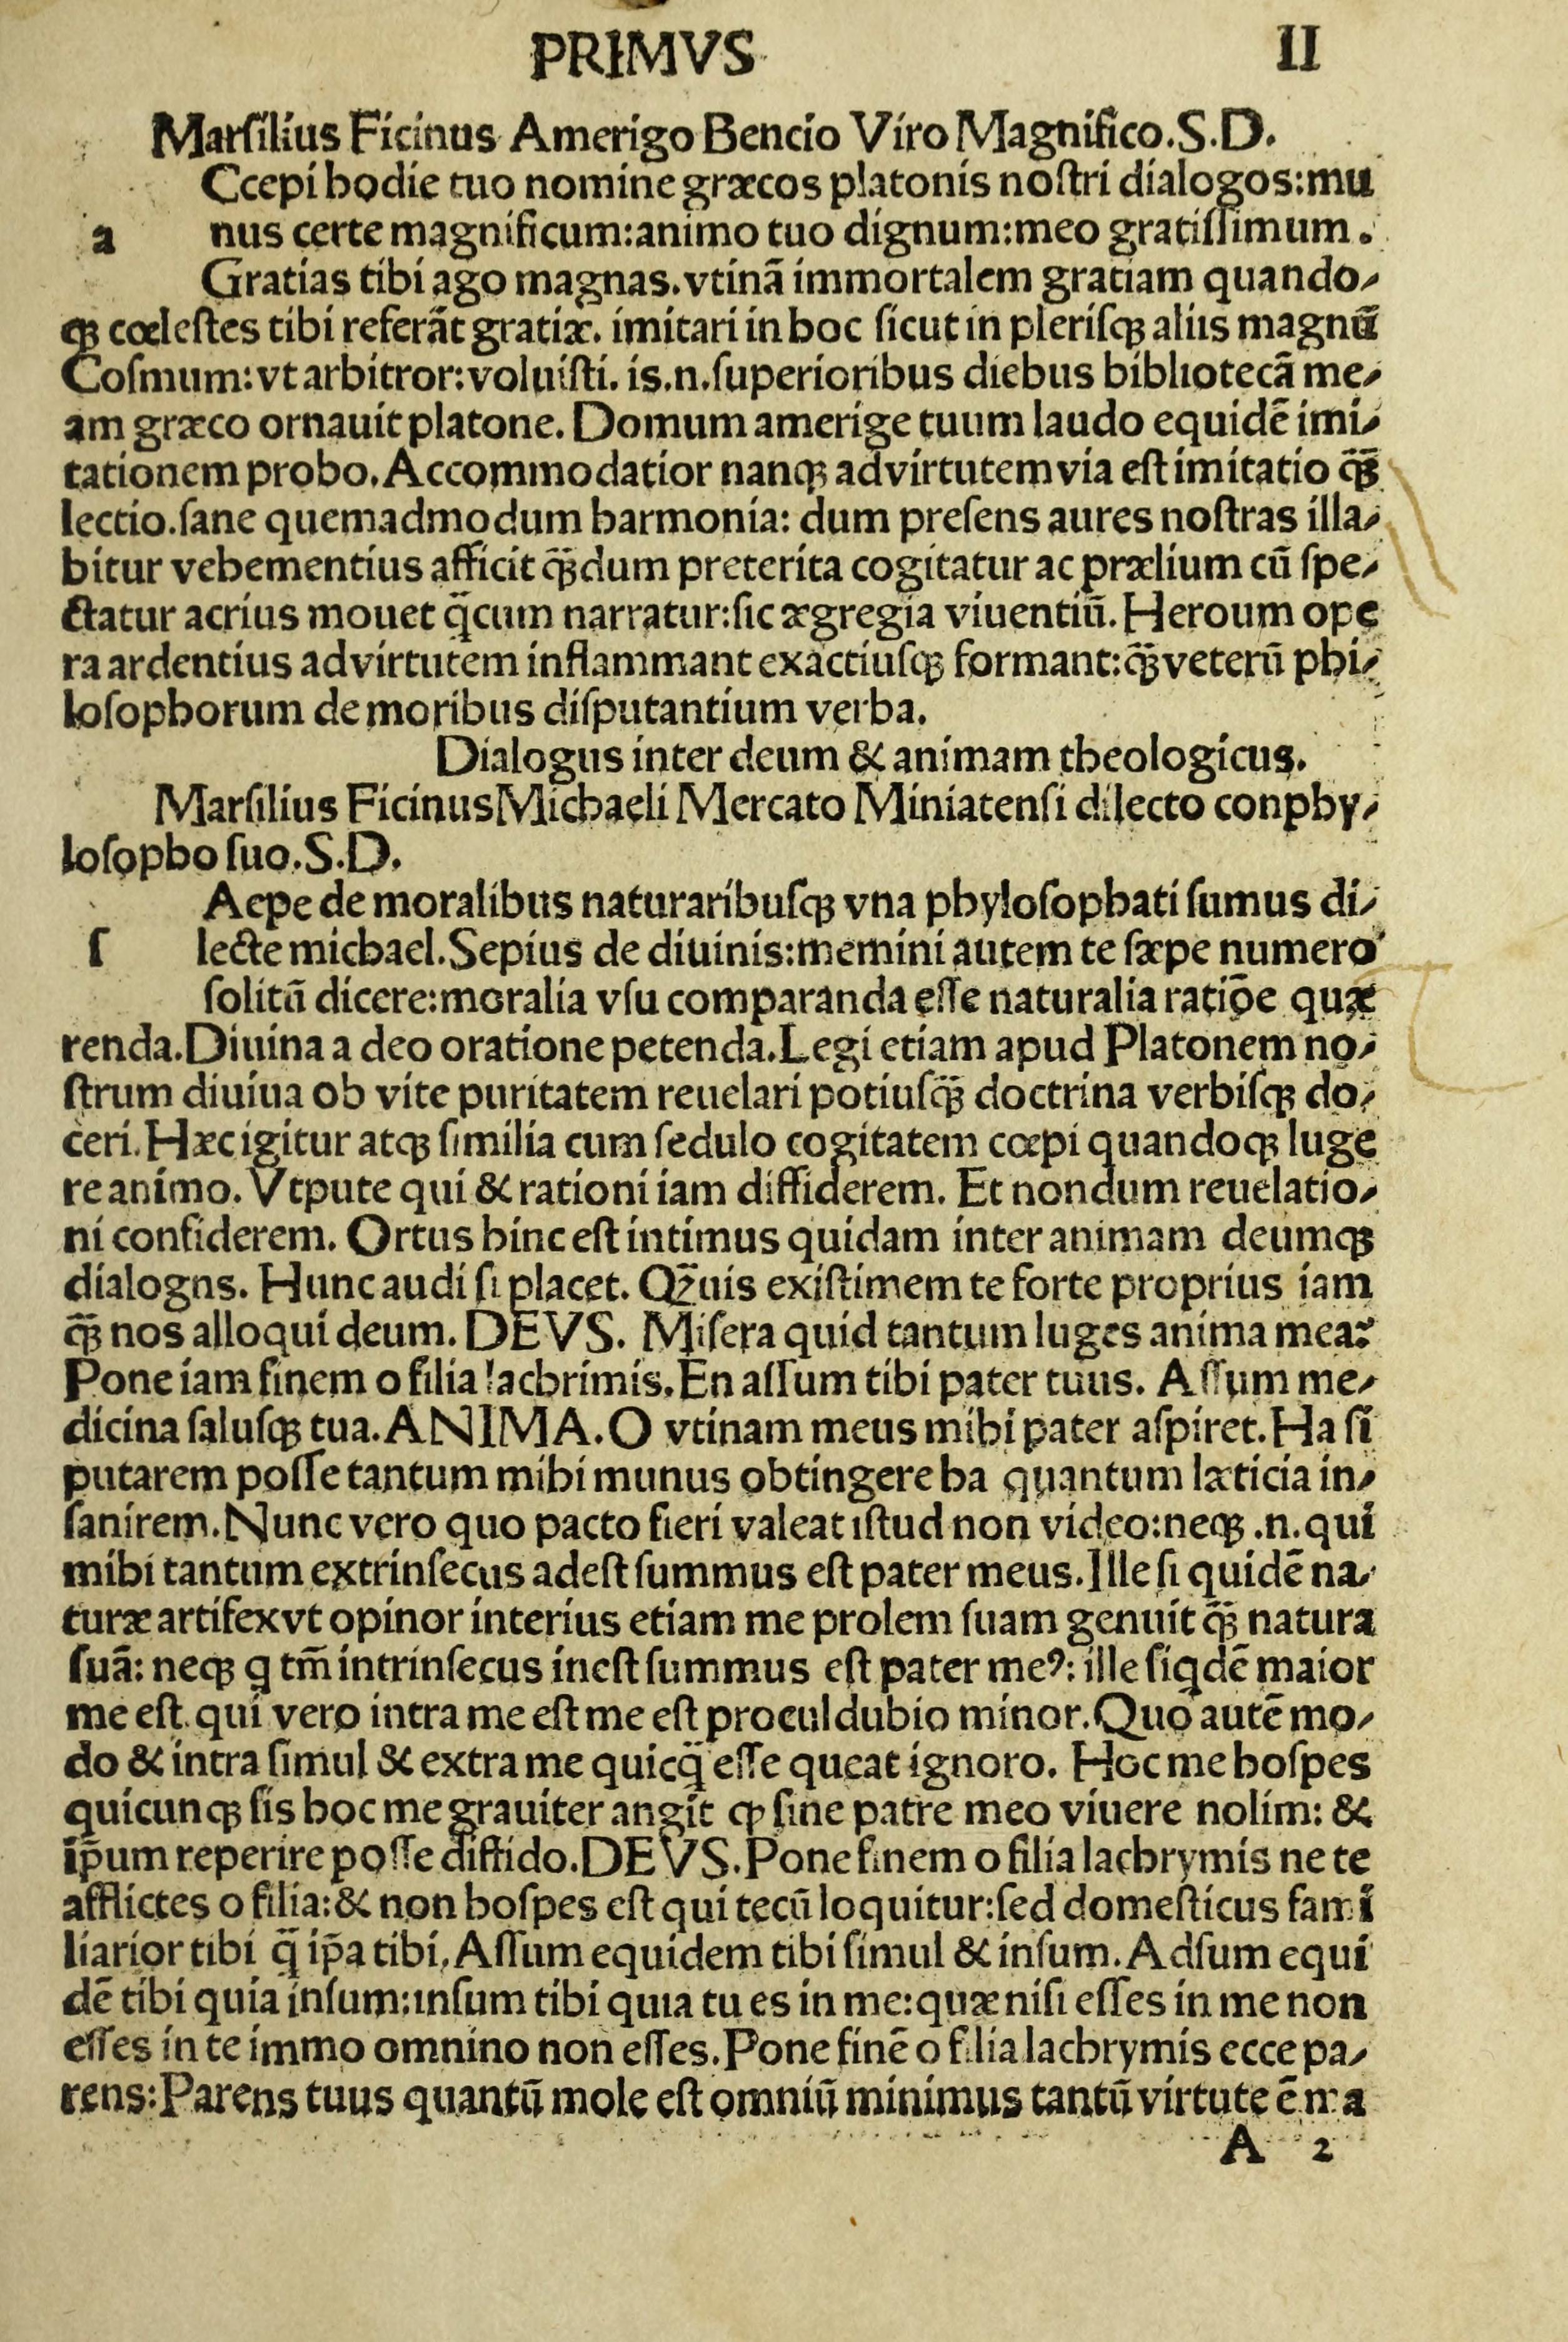 PRIMVS II
Marſilius Ficinus Amerigo Bencio Viro Magnifico.S.D.
Ccepi hodie tuo nomine græcos platonis noſtri dialogos:mu
a nus certe magnificum:animo tuo dignum:meo gratiſſimum.
Gratias tibi ago magnas.vtinã immortalem gratiam quando⸗
qꝫ cœleſtes tibi referãt gratiæ. imitari in hoc ſicut in pleriſqꝫ aliis magnũ
Coſmum:vt arbitror:voluiſti. is.n.ſuperioribus diebus bibliotecã me⸗
am græco ornauit platone. Domum amerige tuum laudo equidẽ imi⸗
tationem probo. Accommodatior nanqꝫ ad virtutem via eſt imitatio qꝫ̃
lectio.ſane quemadmodum harmonia: dum preſens aures noſtras illa⸗
bitur vehementius afficit qꝫ̃ dum preterita cogitatur ac prælium cũ ſpe⸗
ctatur acrius mouet q̃ cum narratur:ſic ægregia viuentiũ. Heroum ope
ra ardentius ad virtutem inflammant exactiuſqꝫ formant:qꝫ̃ veterũ phi⸗
loſophorum de moribus diſputantium verba.
Dialogus inter deum & animam theologicus.
Marſilius Ficinus Michaeli Mercato Miniatenſi dilecto conphy⸗
loſopho ſuo.S.D.
Aepe de moralibus naturaribuſqꝫ vna phyloſophati ſumus di⸗
ſ lecte michael.Sepius de diuinis:memini autem te ſæpe numero
ſolitũ dicere:moralia vſu comparanda eſſe naturalia ratiõe quæ
renda.Diuina a deo oratione petenda.Legi etiam apud Platonem no⸗
ſtrum diuiua ob vite puritatem reuelari potiuſqꝫ̃ doctrina verbiſqꝫ do⸗
ceri. Hæc igitur atqꝫ ſimilia cum ſedulo cogitatem cœpi quandoqꝫ luge
re animo. Vtpute qui & rationi iam diffiderem. Et nondum reuelatio⸗
ni confiderem. Ortus hinc eſt intimus quidam inter animam deumqꝫ
dialogns. Hunc audi ſi placet. Qꝫ̃uis exiſtimem te forte proprius iam
qꝫ̃ nos alloqui deum. DEVS. Miſera quid tantum luges anima mea?
Pone iam finem o filia lachrimis. En aſſum tibi pater tuus. Aſſum me⸗
dicina ſaluſqꝫ tua. ANIMA. O vtinam meus mihi pater aſpiret. Ha ſi
putarem poſſe tantum mihi munus obtingere ha quantum læticia in⸗
ſanirem. Nunc vero quo pacto fieri valeat iſtud non video:neqꝫ .n. qui
mihi tantum extrinſecus adeſt ſummus eſt pater meus. Ille ſi quidẽ na⸗
turæ artifex vt opinor interius etiam me prolem ſuam genuit qꝫ̃ natura
ſuã: neqꝫ q tm̃ intrinſecus ineſt ſummus eſt pater meꝰ: ille ſiqdẽ maior
me eſt. qui vero intra me eſt me eſt procul dubio minor. Quo autẽ mo⸗
do & intra ſimul & extra me quicq̃ eſſe queat ignoro. Hoc me hoſpes
quicunqꝫ ſis hoc me grauiter angit ꝙ ſine patre meo viuere nolim: &
ip̃um reperire poſſe diffido. DEVS. Pone finem o filia lachrymis ne te
afflictes o filia:& non hoſpes eſt qui tecũ loquitur:ſed domeſticus fami
liarior tibi q̃ ip̃a tibi. Aſſum equidem tibi ſimul & inſum. Adſum equi
dẽ tibi quia inſum:inſum tibi quia tu es in me:quæ niſi eſſes in me non
eſſes in te immo omnino non eſſes. Pone finẽ o filia lachrymis ecce pa⸗
rens:Parens tuus quantũ mole eſt omniũ minimus tantũ virtute ẽ ma
A 2